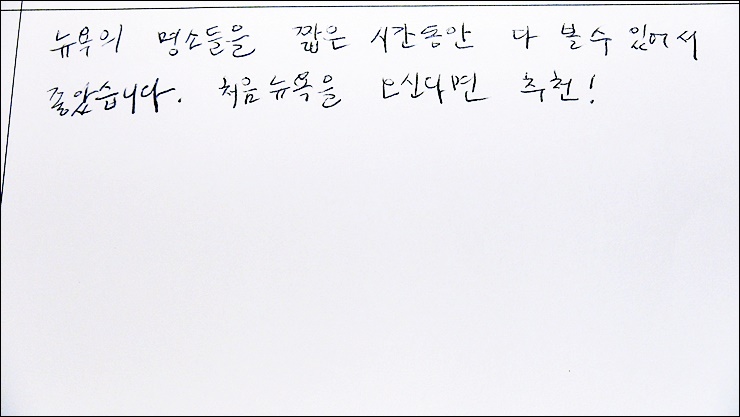 뉴욕의 명소들을 짧은 시간동안 다 볼수 있어서
좋았습니다. 처음 뉴욕을 오신다면 추천!